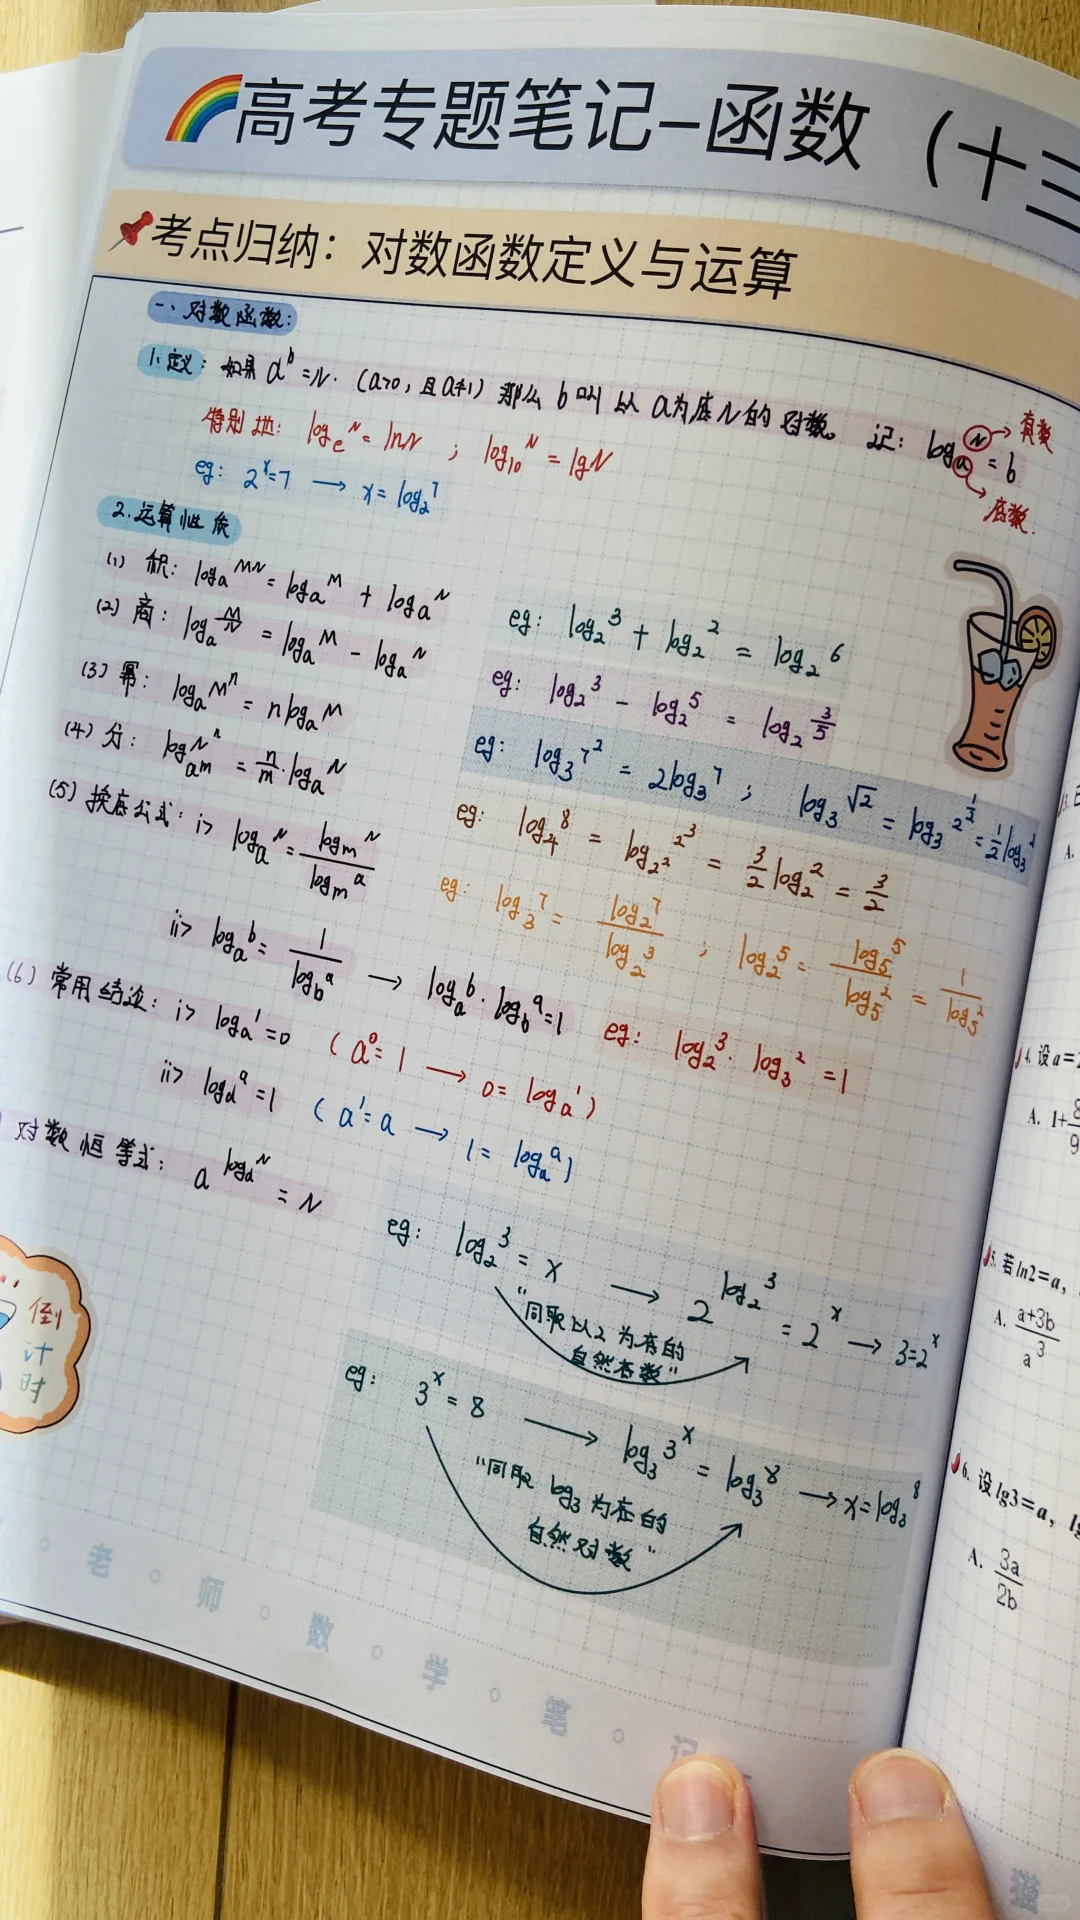 高考专题笔记-函数（十三
考点归纳：对数函数定义与运算
一、对数函数：
1、定义：如果 a^b=N.（a>0，且a≠1）那么 b叫以 a为底N的 对数。 记：log_a N = b
真数
底数.
特别地：log_e N = lnN ； log_10 N = lgN
eg：2^x=7 → x=log_2 7
2.运算性质
(1) 积：log_a MN = log_a M + log_a N
eg：log_2 3 + log_2 2 = log_2 6
(2) 商：log_a M/N = log_a M - log_a N
eg：log_2 3 - log_2 5 = log_2 3/5
(3) 幂：log_a M^n = nlog_a M
eg：log_3 7^2 = 2log_3 7 ； log_3 √2 = log_3 2^(1/2) = 1/2 log_3 2
(4) 分：log_(a^m) N^n = n/m · log_a N
eg：log_4 8 = log_(2^2) 2^3 = 3/2 log_2 2 = 3/2
(5) 换底公式：i> log_a N = log_m N / log_m a
eg：log_3 7 = log_2 7 / log_2 3 ； log_2 5 = log_5 5 / log_5 2 = 1 / log_5 2
ii> log_a b = 1 / log_b a → log_a b · log_b a = 1
eg：log_2 3 · log_3 2 = 1
(6) 常用结论：i> log_a 1 = 0 （a^0=1 → 0=log_a 1）
ii> log_a a = 1 （a^1=a → 1=log_a a）
对数恒等式：a^(log_a N) = N
eg：log_2 3 = x → 2^(log_2 3) = 2^x → 3=2^x
"同取以2为底的
自然

eg：3^x = 8 → log_3 3^x = log_3 8 → x=log_3 8
"同取 log_3 为底的
自然对数"
倒
计
时
老 师 数 学 笔 记
A.
4. 设a=
A. 1+8/9
5. 若ln2=a，
A. (a+3b)/a^3
6. 设lg3=a，lg
A. 3a/2b